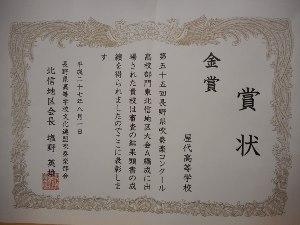 賞状
金賞
屋代高等学校
第五十五回長野県吹奏楽コンクール
高校部門東北信地区大会A編成に出
場された貴校は審査の結果頭書の成
績を得られましたのでここに表彰しま
す
平成二十七年八月一日
長野県高等学校文化連盟吹奏楽部会
北信地区会長 塩野英雄